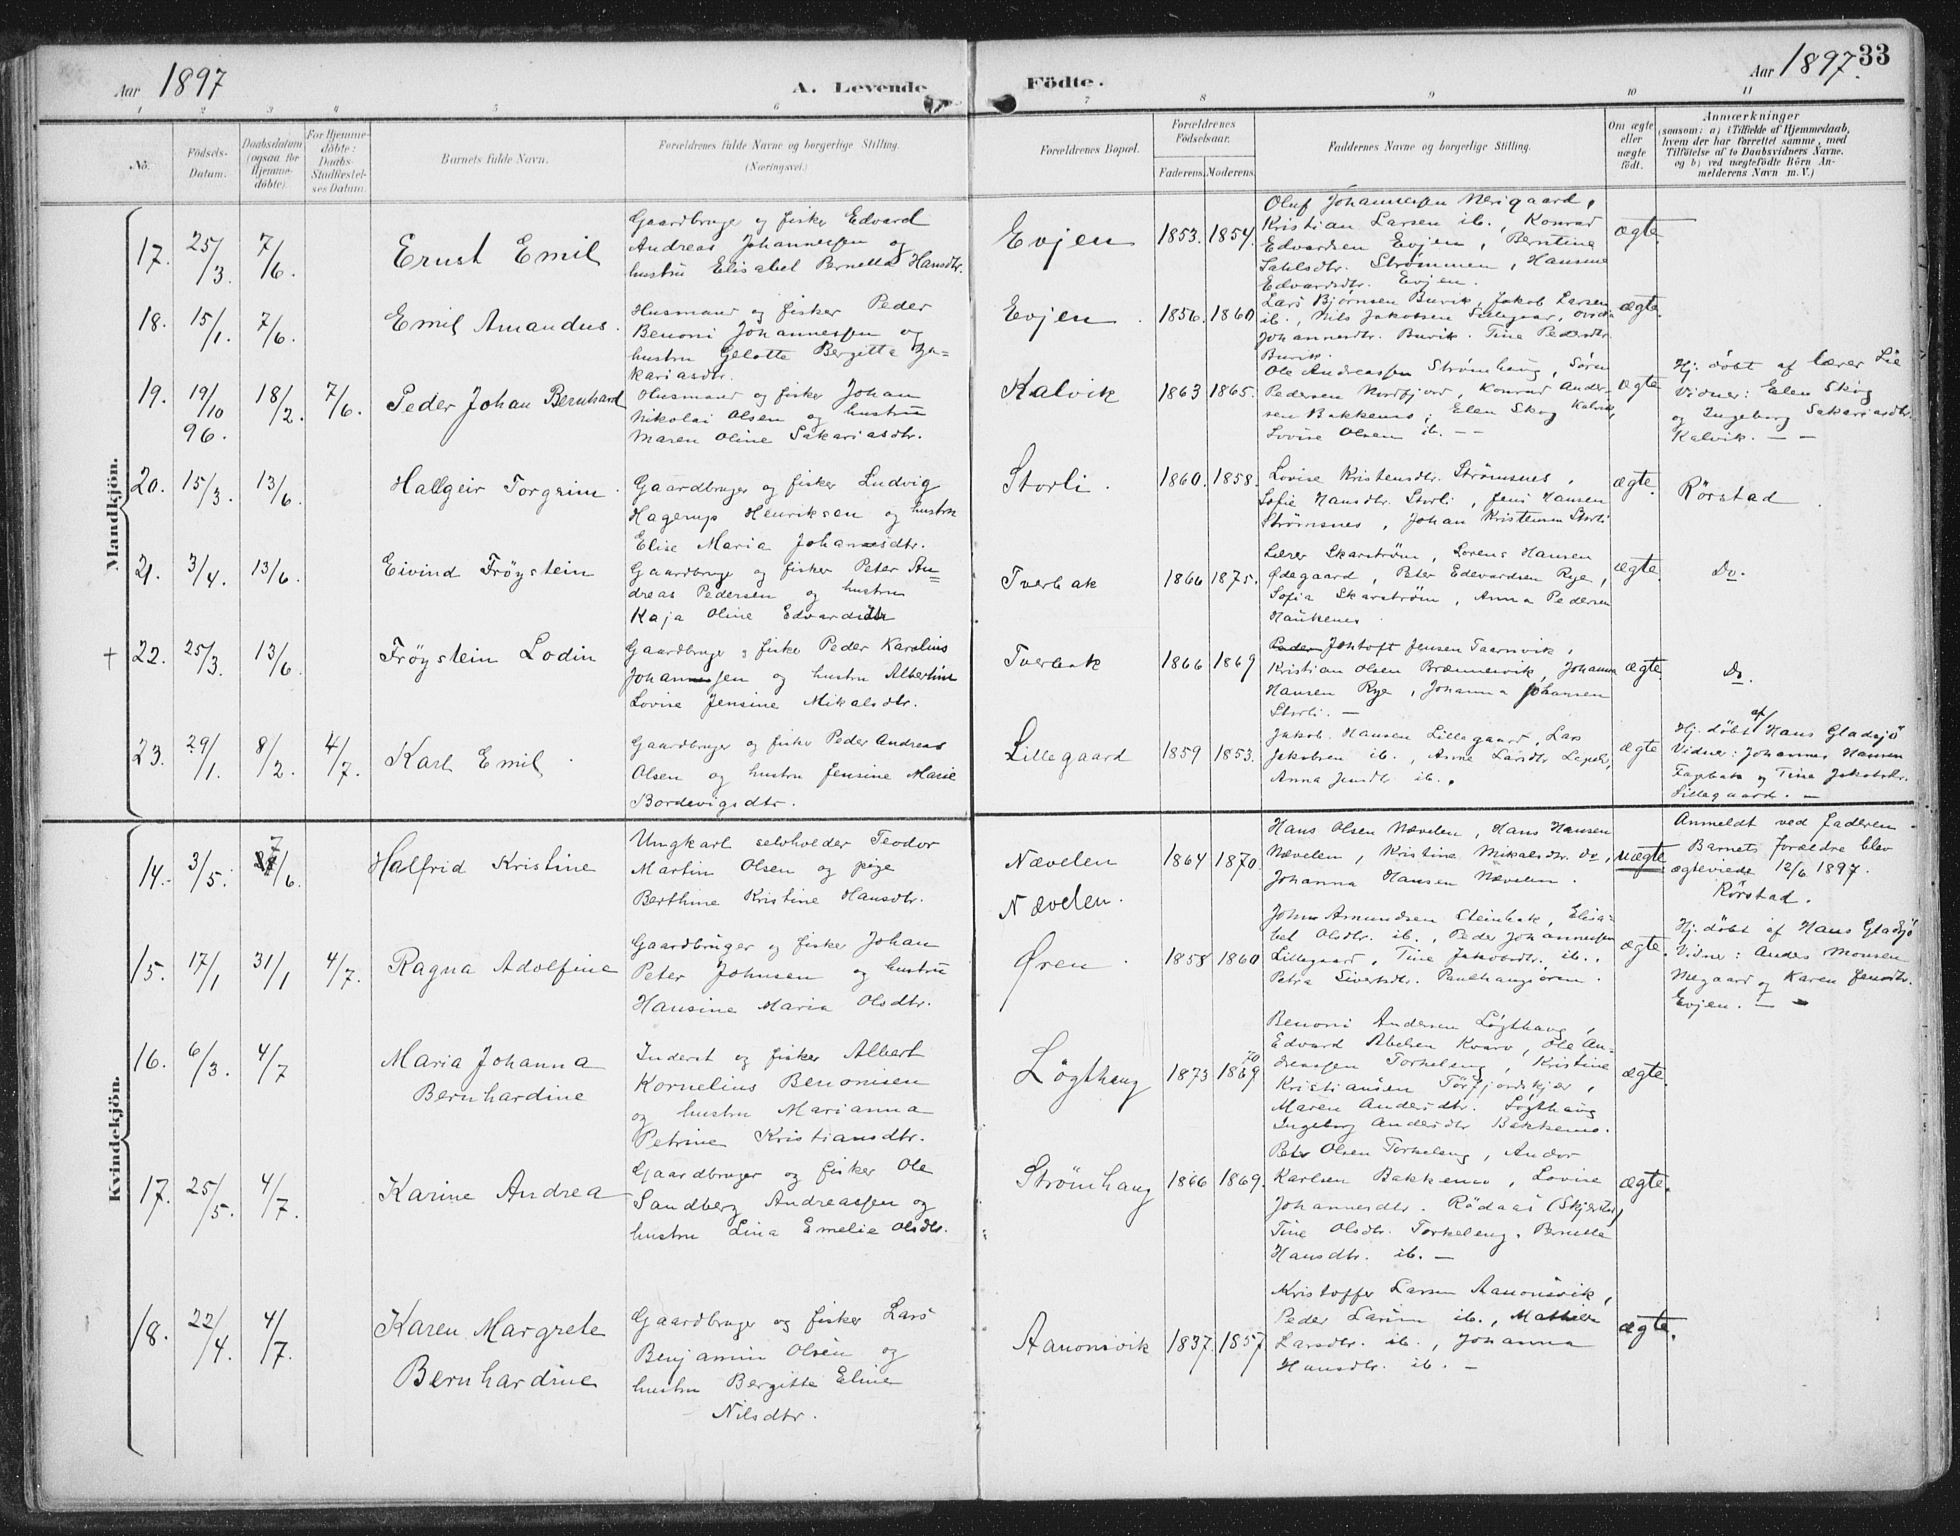 Aar 1897
A. Levende
Födte.
Aar 1897.
33
1 2 3 4 5 6 7 8 9 10 11
No.
Födsels-
Datum.
Daabsdatum
(ogsaa for
Hjemme-
döbte).
For Hjemme-
döbte:
Daabs-
Stadfæstel-
ses Datum.
Barnets fulde Navn.
Forældrenes fulde Navne og borgerlige Stilling.
(Næringsvei.)
Forældrenes Bopæl.
Forældrenes
Födselsaar.
Faderens.
Moderens.
Faddernes Navne og borgerlige Stilling.
Om ægte
eller
uægte
födt.
Anmærkninger
(saasom: a) i Tilfælde af Hjemmedaab,
hvem der har forrettet samme, med
Tilföielse af to Daabsvidners Navne.
og b) ved uægtefödte Börn An-
melderens Navn m. V.)
Mandkjön.
17. 25/3. 7/6. Ernst Emil
Gaardbruger og fisker Edvard
Andreas Johannessen og
hustru Elisabet Pernella Hansdtr.
Evjen 1853. 1854.
Oluf Johannessen Nerigaard,
Kristian Larsen ib., Konrad
Edvardsen Evjen, Berntine
Strømmen, Hansine
Edvardsdtr. Evjen.
ægte.
18. 15/1. 7/6. Emil Amandus.
Husmand og fisker Peder
Benoni Johannessen og
hustru Gelotte Bergitta Za-
kariasdtr.
Evjen. 1856. 1860.
Lars Bjørnsen Buvik, Jakob Larsen
ib., Nils Jakobsen
Johannesdtr. Buvik. Tine Pedersdtr.
Buvik.
ægte.
19. 19/10 96. 18/2. 7/6. Peder Johan Bernhard
Husmand og fisker Johan
Nikolai Olsen og hustru
Maren Oline Sakariasdtr.
Kalvik 1863 1865.
Ole Andreassen Strømhaug, Søren
Pedersen Nordfjord, Konrad Ander-
sen Bakkemo, Elen Skog Kalvik,
Lovise Olsen ib. - -
ægte
Hj. døbt af lærer Lie
Vidner: Elen Skog
og Ingeborg Sakariasdtr.
Kalvik. - -
20. 15/3. 13/6. Hallgeir Torgrim.
Gaardbruger og fisker Ludvig
Hagerup Henriksen og hustru
Elise Maria Johansdtr.
Storli. 1860. 1858.
Lovise Kristensdtr. Strømsnes,
Sofie Hansdtr. Storli, Jens Hansen
Strømsnes, Johan Kristensen Storli
ægte.
Rørstad.
21. 3/4. 13/6. Eivind Frøystein
Gaardbruger og fisker Peter An-
dreas Pedersen og hustru
Kaja Oline Edvardsdtr
Tverbak 1866 1875.
Lærer Skarstrøm, Lorens Hansen
Ødegaard, Peter Edevardsen Rye,
Sofia Skarstrøm, Anna Pedersen
ægte.
Do.
+ 22. 25/3. 13/6. Frøystein Lodin
Gaardbruger og fisker Peder Karolius
Johannesen og hustru Albertine
Lovise Jensine Mikalsdtr.
Tverbak 1866 1869
Jentoft Jensen Taarnvik,
Kristian Olsen Brænnesvik, Johanna
Hansen Rye, Johanna Johansen
Storli. -
ægte
Do.
23. 29/1. 8/2. 4/7. Karl Emil.
Gaardbruger og fisker Peder Andreas
Olsen og hustru Jensine Marie
Bordevigsdtr.
Lillegaard 1859 1853.
Jakob Hansen Lillegaard, Lars
Jakobsen ib., Anne Larsdtr
Anna Jensdtr ib.
ægte
Hj. døbt af Hans Gladsjø
Vidner: Johannes Hansen
Fagerbak og Tine Jakobsdtr.
Lillegaard. -
Kvindekjön.
14. 3/5. 7/6. Halfrid Kristine
Ungkarl selvholder Teodor
Martin Olsen og pige
Berthine Kristine Hansdtr.
Nævelen
Nævelen.
1864 1870
Hans Olsen Nævelen, Hans Hansen
Nævelen, Kristine Mikalsdtr. do,
Johanna Hansen Nævelen.
uægte
Anmeldt ved faderen.
Barnets forældre blev
ægteviede 12/6 1897.
Rørstad.
15. 17/1 31/1 4/7. Ragna Adolfine
Gaardbruger og fisker Johan
Peter Johnsen og hustru
Hansine Maria Olsdtr.
Øren. 1858 1860
Johan Asmundsen Steinbak, Elisa-
bet Olsdtr. ib., Peder Johannessen
Lillegaard, Tine Jakobsdtr. ib.,
Petra Sivertsdtr. Paulhaugøren.
ægte.
Hj. døbt af Hans Gladsjø
Vidner: Andes Monsen
Megaard og Karen Jensdtr.
Evjen. - -
16. 6/3. 4/7 Maria Johanna
Bernhardine
Inderst og fisker Albert
Kornelius Benonisen
og hustru Marianna
Petrine Kristiansdtr.
Løgthaug 1873 1869 70
Benoni Andersen Løgthaug,
Edvard Abelsen Kvarv, Ole An-
dreassen Torkeleng, Kristine
Kristiansen Tørfjordskjær,
Maren Andersdtr. Løgthaug
Ingeborg Andersdtr Bakkemo.
ægte.
17. 25/5. 4/7. Karine Andrea
Gaardbruger og fisker Ole
Sandberg Andreassen og
hustru Lina Emelie Olsdtr.
Strømhaug 1866 1869.
Peter Olsen Torkeleng, Andor
Karlsen Bakkemo, Lovise
Johannesdtr. Rødaas
Tine Olsdtr. Torkeleng. Pernille
Hansdtr. ib. -
ægte.
18. 22/4. 4/7. Karen Margrete
Bernhardine
Gaardbruger og fisker Lars
Benjamin Olsen og
hustru Bergitte Eline
Nilsdtr.
Aanonsvik 1837. 1857.
Kristoffer Larsen Aanonsvik,
Peder Larsen ib., Mathilde
Larsdtr. ib., Johanna
Hansdtr. ib. -
ægte.